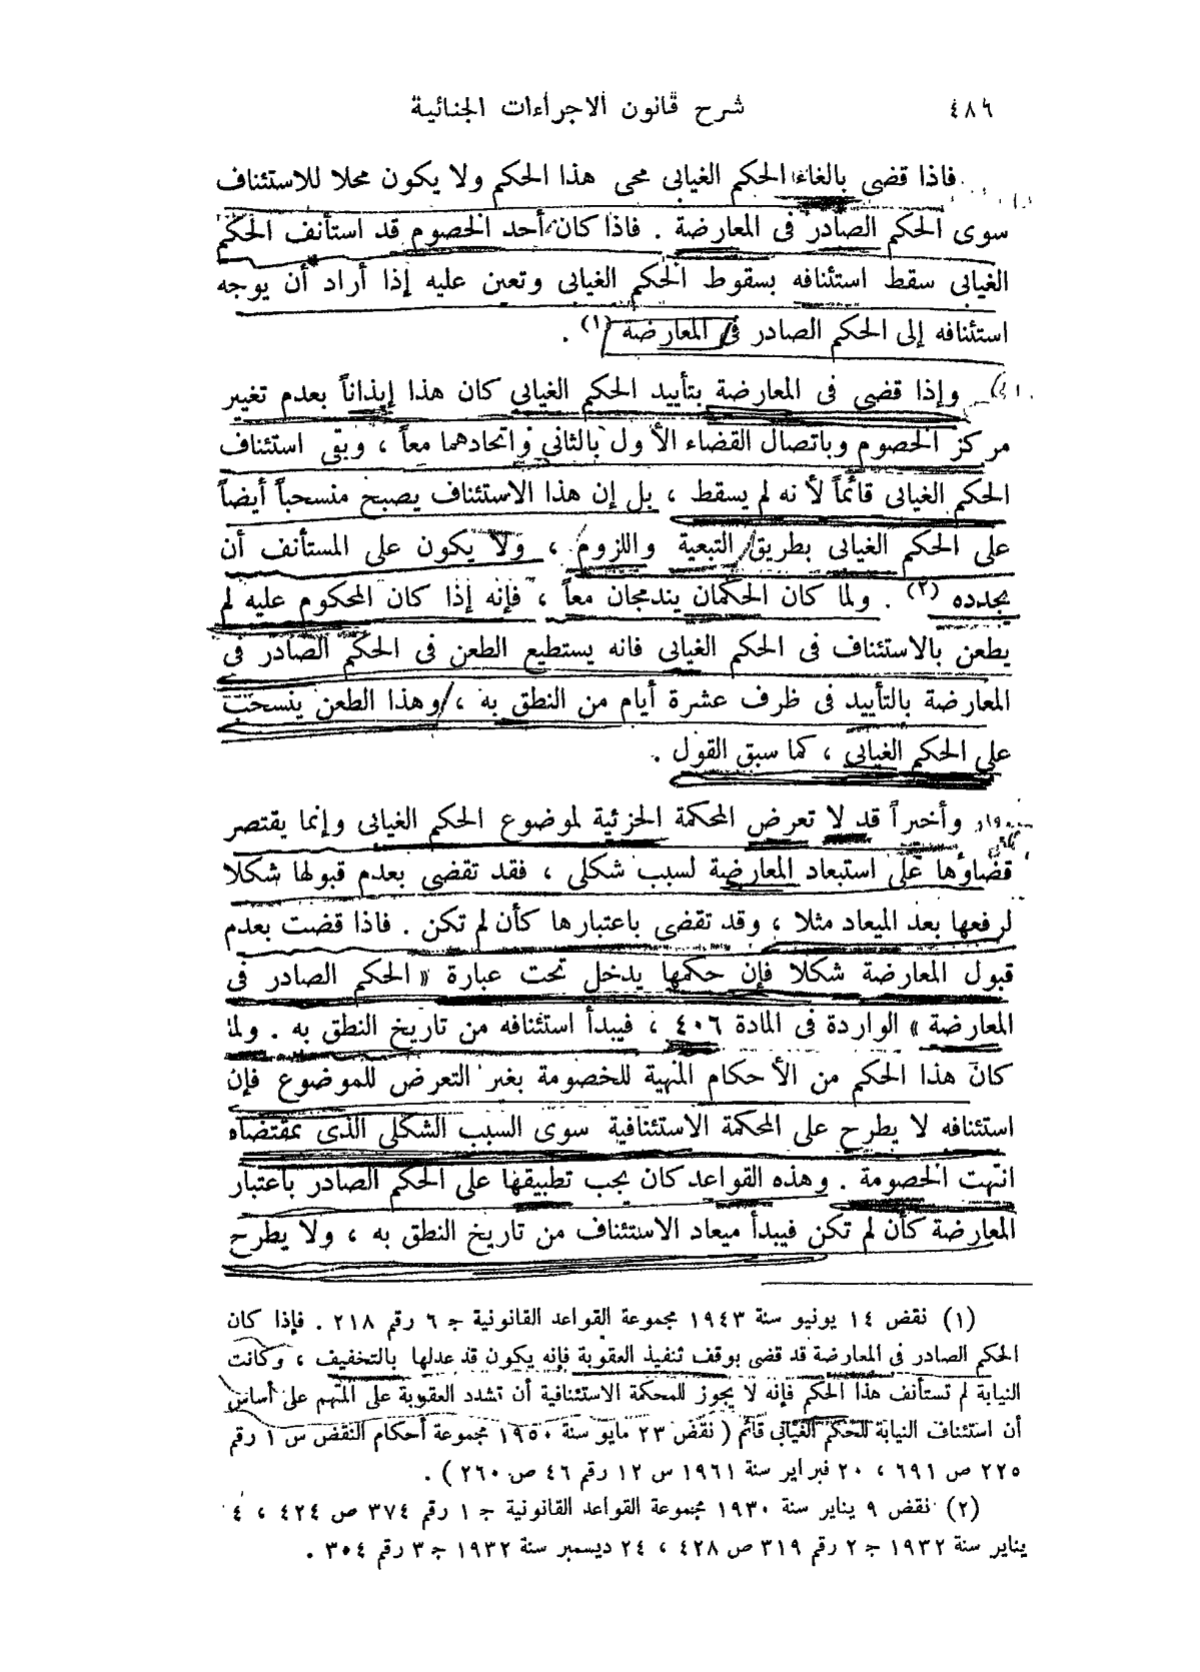 ٤٨٦
شرح قانون الاجراءات الجنائية
فاذا قضى بالغاء الحكم الغيابى محى هذا الحكم ولا يكون محلا للاستئناف
سوى الحكم الصادر فى المعارضة . فاذا كان أحد الخصوم قد استأنف الحكم
الغيابى سقط استئنافه بسقوط الحكم الغيابى وتعين عليه إذا أراد أن يوجه
استئنافه إلى الحكم الصادر فى المعارضة (١) .
وإذا قضى فى المعارضة بتأييد الحكم الغيابى كان هذا إيذاناً بعدم تغيير
مركز الخصوم وباتصال القضاء الأول بالثانى واتحادهما معاً ، وبقى استئناف
الحكم الغيابى قائماً لأنه لم يسقط ، بل إن هذا الاستئناف يصبح منسحباً أيضاً
على الحكم الغيابى بطريق التبعية واللزوم ، ولا يكون على المستأنف أن
يجدده (٢) . ولما كان الحكمان يندمجان معاً ، فإنه إذا كان المحكوم عليه لم
يطعن بالاستئناف فى الحكم الغيابى فانه يستطيع الطعن فى الحكم الصادر فى
المعارضة بالتأييد فى ظرف عشرة أيام من النطق به ، وهذا الطعن ينسحب
على الحكم الغيابى ، كما سبق القول .
وأخيراً قد لا تعرض المحكمة الجزئية لموضوع الحكم الغيابى وإنما يقتصر
قضاؤها على استبعاد المعارضة لسبب شكلى ، فقد تقضى بعدم قبولها شكلا
لرفعها بعد الميعاد مثلا ، وقد تقضى باعتبارها كأن لم تكن . فاذا قضت بعدم
قبول المعارضة شكلا فإن حكمها يدخل تحت عبارة « الحكم الصادر فى
المعارضة » الواردة فى المادة ٤٠٦ ، فيبدأ استئنافه من تاريخ النطق به . ولما
كان هذا الحكم من الأحكام المنهية للخصومة بغير التعرض للموضوع فإن
استئنافه لا يطرح على المحكمة الاستئنافية سوى السبب الشكلى الذى بمقتضاه
انتهت الخصومة . وهذه القواعد كان يجب تطبيقها على الحكم الصادر باعتبار
المعارضة كأن لم تكن فيبدأ ميعاد الاستئناف من تاريخ النطق به ، ولا يطرح
(١) نقض ١٤ يونيو سنة ١٩٤٣ مجموعة القواعد القانونية جـ ٦ رقم ٢١٨ . فإذا كان
الحكم الصادر فى المعارضة قد قضى بوقف تنفيذ العقوبة فإنه يكون قد عدلها بالتخفيف ، وكانت
النيابة لم تستأنف هذا الحكم فإنه لا يجوز للمحكمة الاستئنافية أن تشدد العقوبة على المتهم على أساس
أن استئناف النيابة للحكم الغيابى قائم ( نقض ٢٣ مايو سنة ١٩٥٠ مجموعة أحكام النقض س ١ رقم
٢٢٥ ص ٦٩١ ، ٢٠ فبراير سنة ١٩٦١ س ١٢ رقم ٤٦ ص ٢٦٠ ) .
(٢) نقض ٩ يناير سنة ١٩٣٠ مجموعة القواعد القانونية جـ ١ رقم ٣٧٤ ص ٤٢٤ ، ٤
يناير سنة ١٩٣٢ جـ ٢ رقم ٣١٩ ص ٤٢٨ ، ٢٤ ديسمبر سنة ١٩٣٢ جـ ٣ رقم ٣٠٤ .